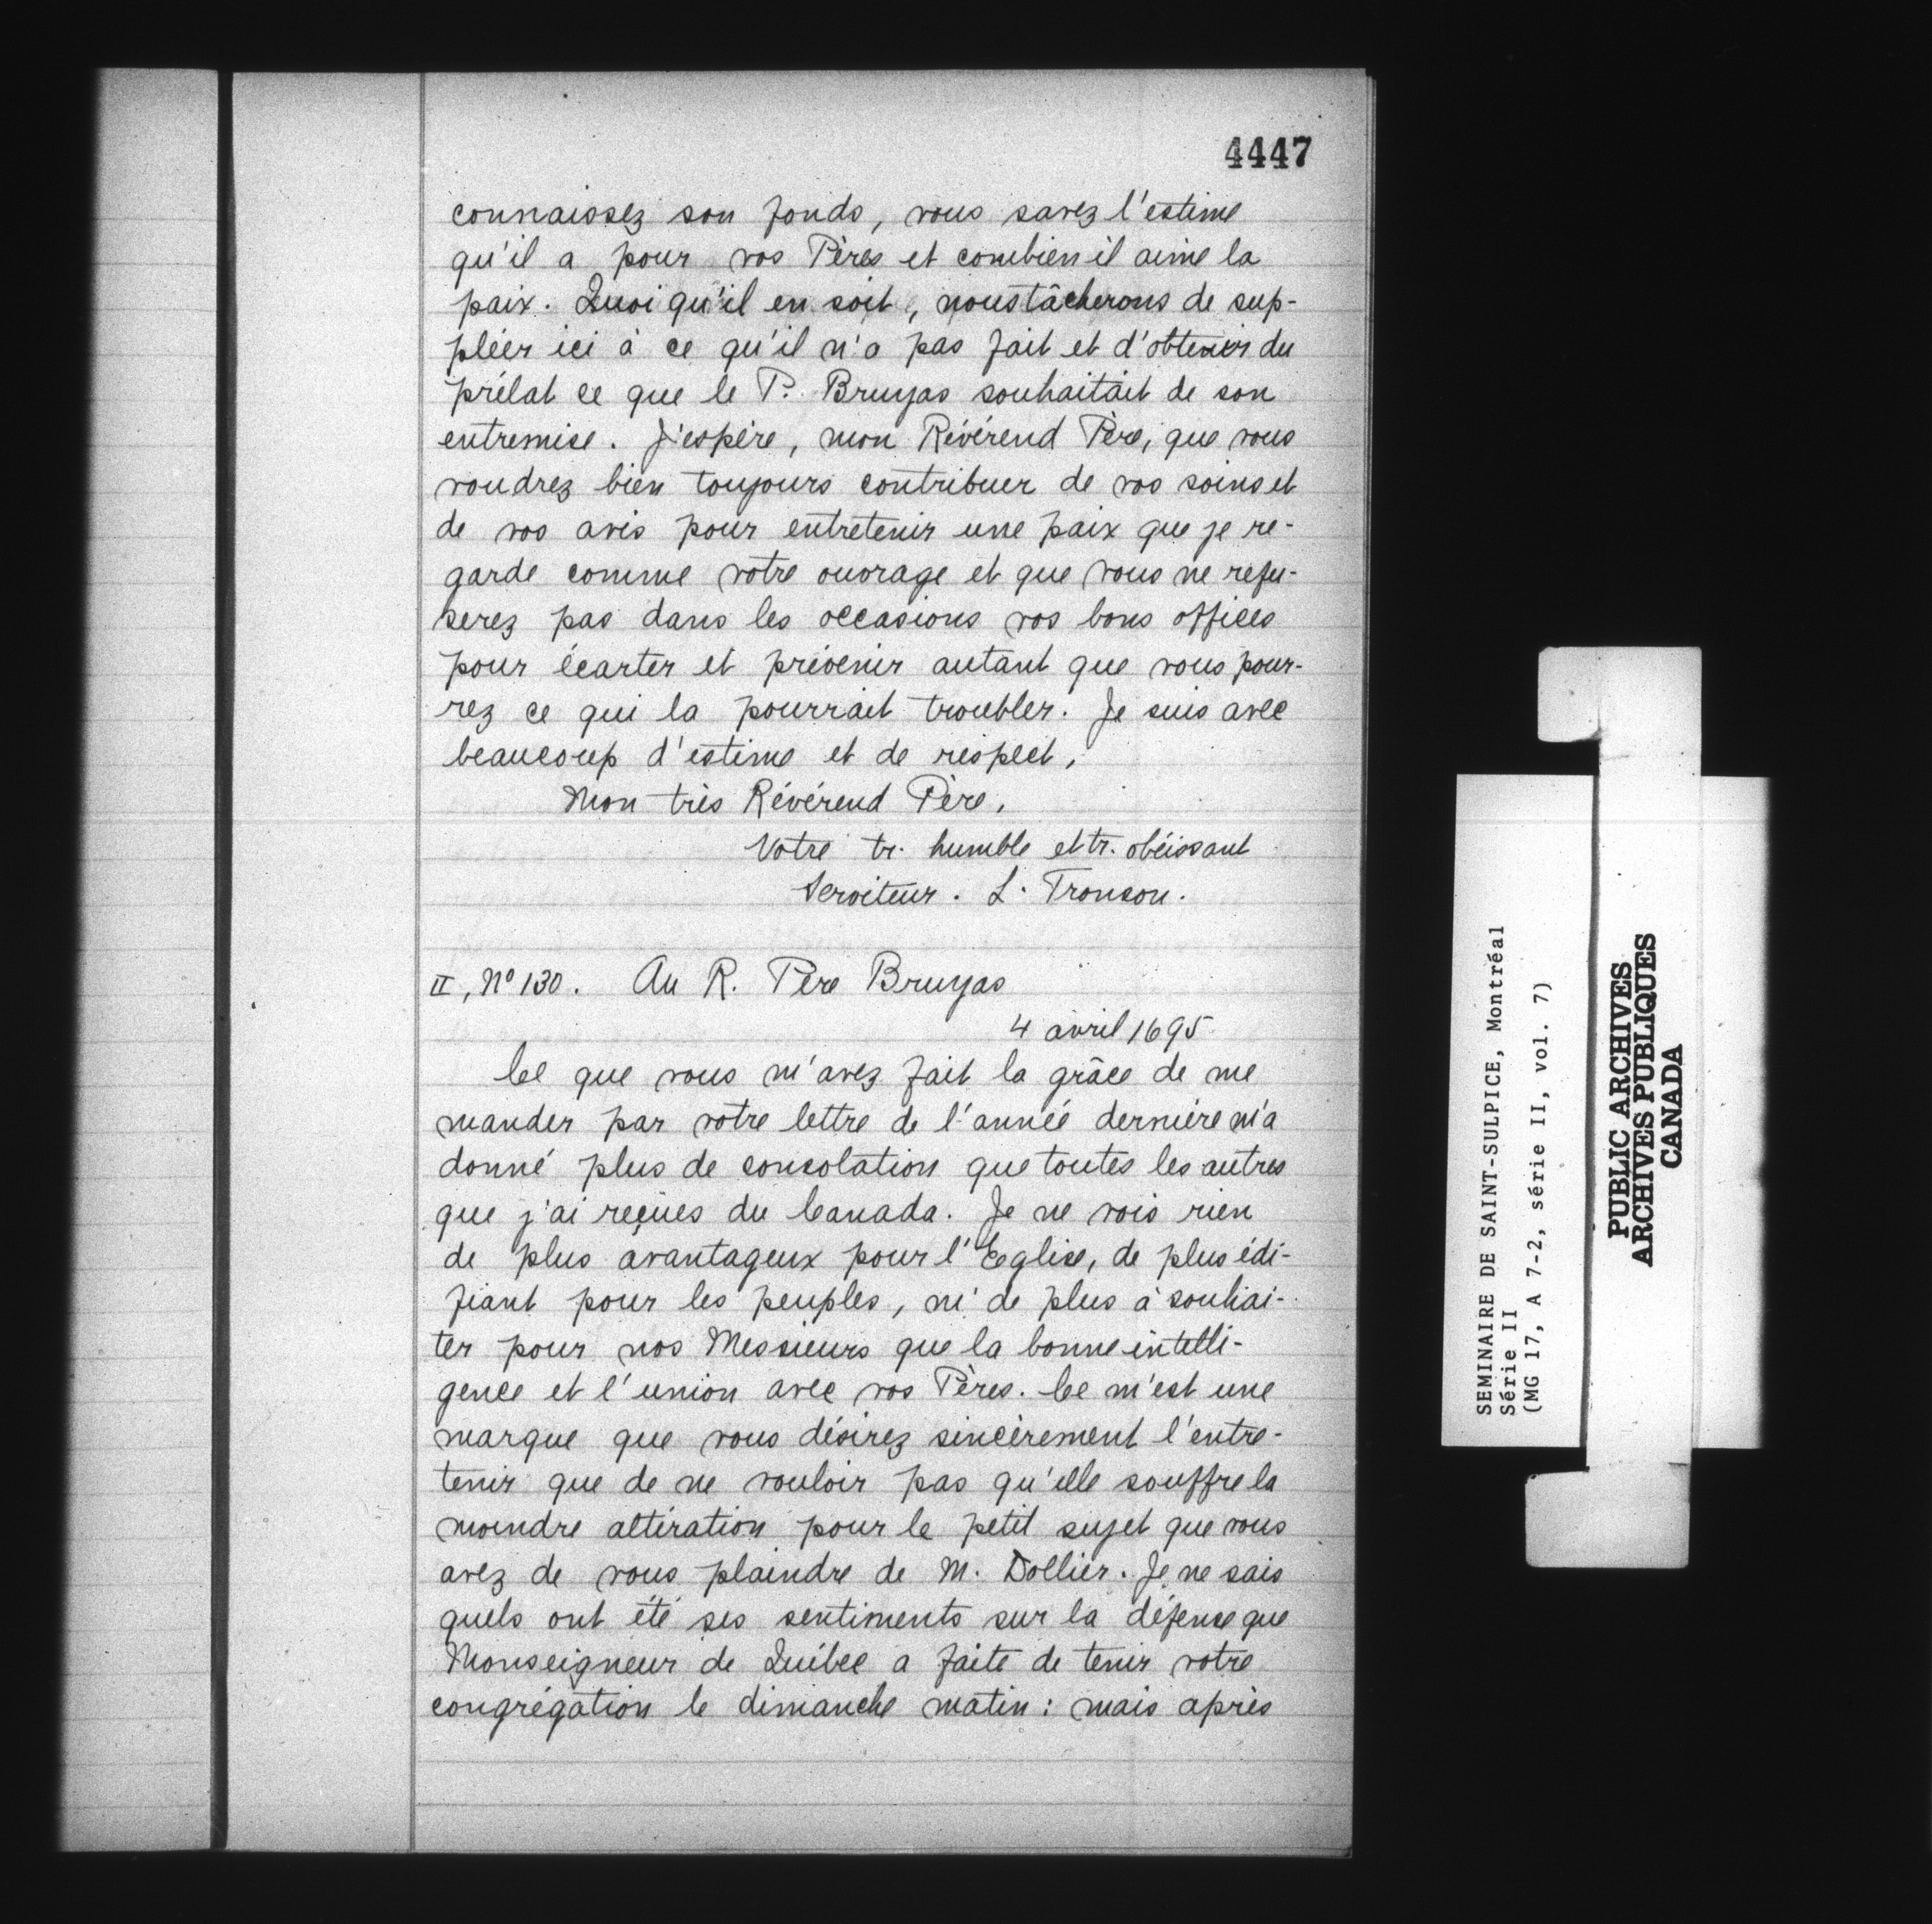 4447
connaissez son fonds, vous savez l'estime
qu'il a pour vos Pères et combien il aime la
paix. Quoi qu'il en soit, nous tâcherons de sup-
pléer ici à ce qu'il n'a pas fait et d'obtenir du
prélat ce que le P. Bruyas souhaitait de son
entremise. J'espère, mon Révérend Père, que vous
voudrez bien toujours contribuer de vos soins et
de vos avis pour entretenir une paix que je re-
garde comme votre ouvrage et que vous ne refu-
serez pas dans les occasions vos bons offices
pour écarter et prévenir autant que vous pour-
rez ce qui la pourrait troubler. Je suis avec
beaucoup d'estime et de respect,
Mon très Révérend Père,
Votre tr. humble et tr. obéissant
Serviteur. L. Tronson.
II, N° 130. Au R. Père Bruyas
4 avril 1695
Ce que vous m'avez fait la grâce de me
mander par votre lettre de l'année dernière m'a
donné plus de consolation que toutes les autres
que j'ai reçues du Canada. Je ne vois rien
de plus avantageux pour l'Eglise, de plus édi-
fiant pour les peuples, ni de plus à souhai-
ter pour nos Messieurs que la bonne intelli-
gence et l'union avec vos Pères. Ce m'est une
marque que vous désirez sincèrement l'entre-
tenir que de ne vouloir pas qu'elle souffre la
moindre altération pour le petit sujet que vous
avez de vous plaindre de M. Dollier. Je ne sais
quels ont été ses sentiments sur la défense que
Monseigneur de Québec a faite de tenir votre
congrégation le dimanche matin : mais après
SEMINAIRE DE SAINT-SULPICE, Montréal
Série II
(MG 17, A 7-2, série II, vol. 7)
PUBLIC ARCHIVES
ARCHIVES PUBLIQUES
CANADA